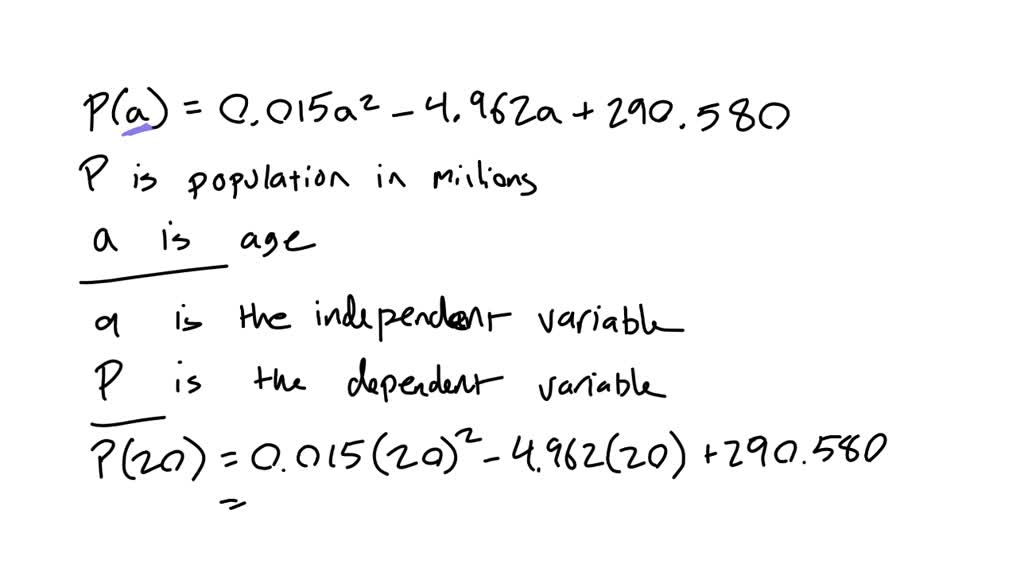 P(a) = 0.015a² - 4.962a + 290.580
P is population in millions
a is age
a is the independent variable
P is the dependent variable
P(20) = 0.015(20)² - 4.962(20) + 290.580
=